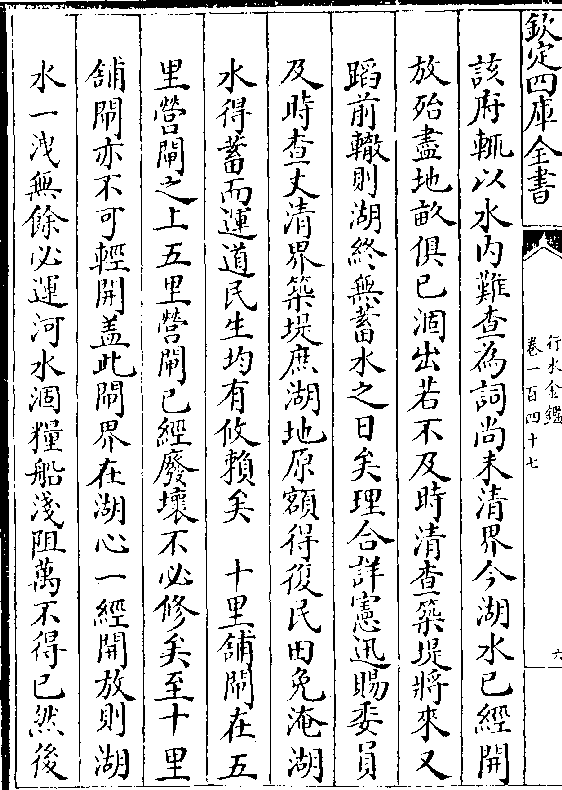 欽定四庫全書
行水金鑑
卷一百四十七
六
該府輒以水內難查為詞尚未清界今湖水已經開
放殆盡地畝俱已涸出若不及時清查築堤將來又
蹈前轍則湖終無蓄水之日矣理合詳憲迅賜委員
及時查丈清界築堤庶湖地原額得復民田免淹湖
水得蓄而運道民生均有攸賴矣　十里鋪閘在五
里營閘之上五里營閘已經廢壞不必修矣至十里
鋪閘亦不可輕開盖此閘界在湖心一經開放則湖
水一洩無餘必運河水涸糧船淺阻萬不得已然後